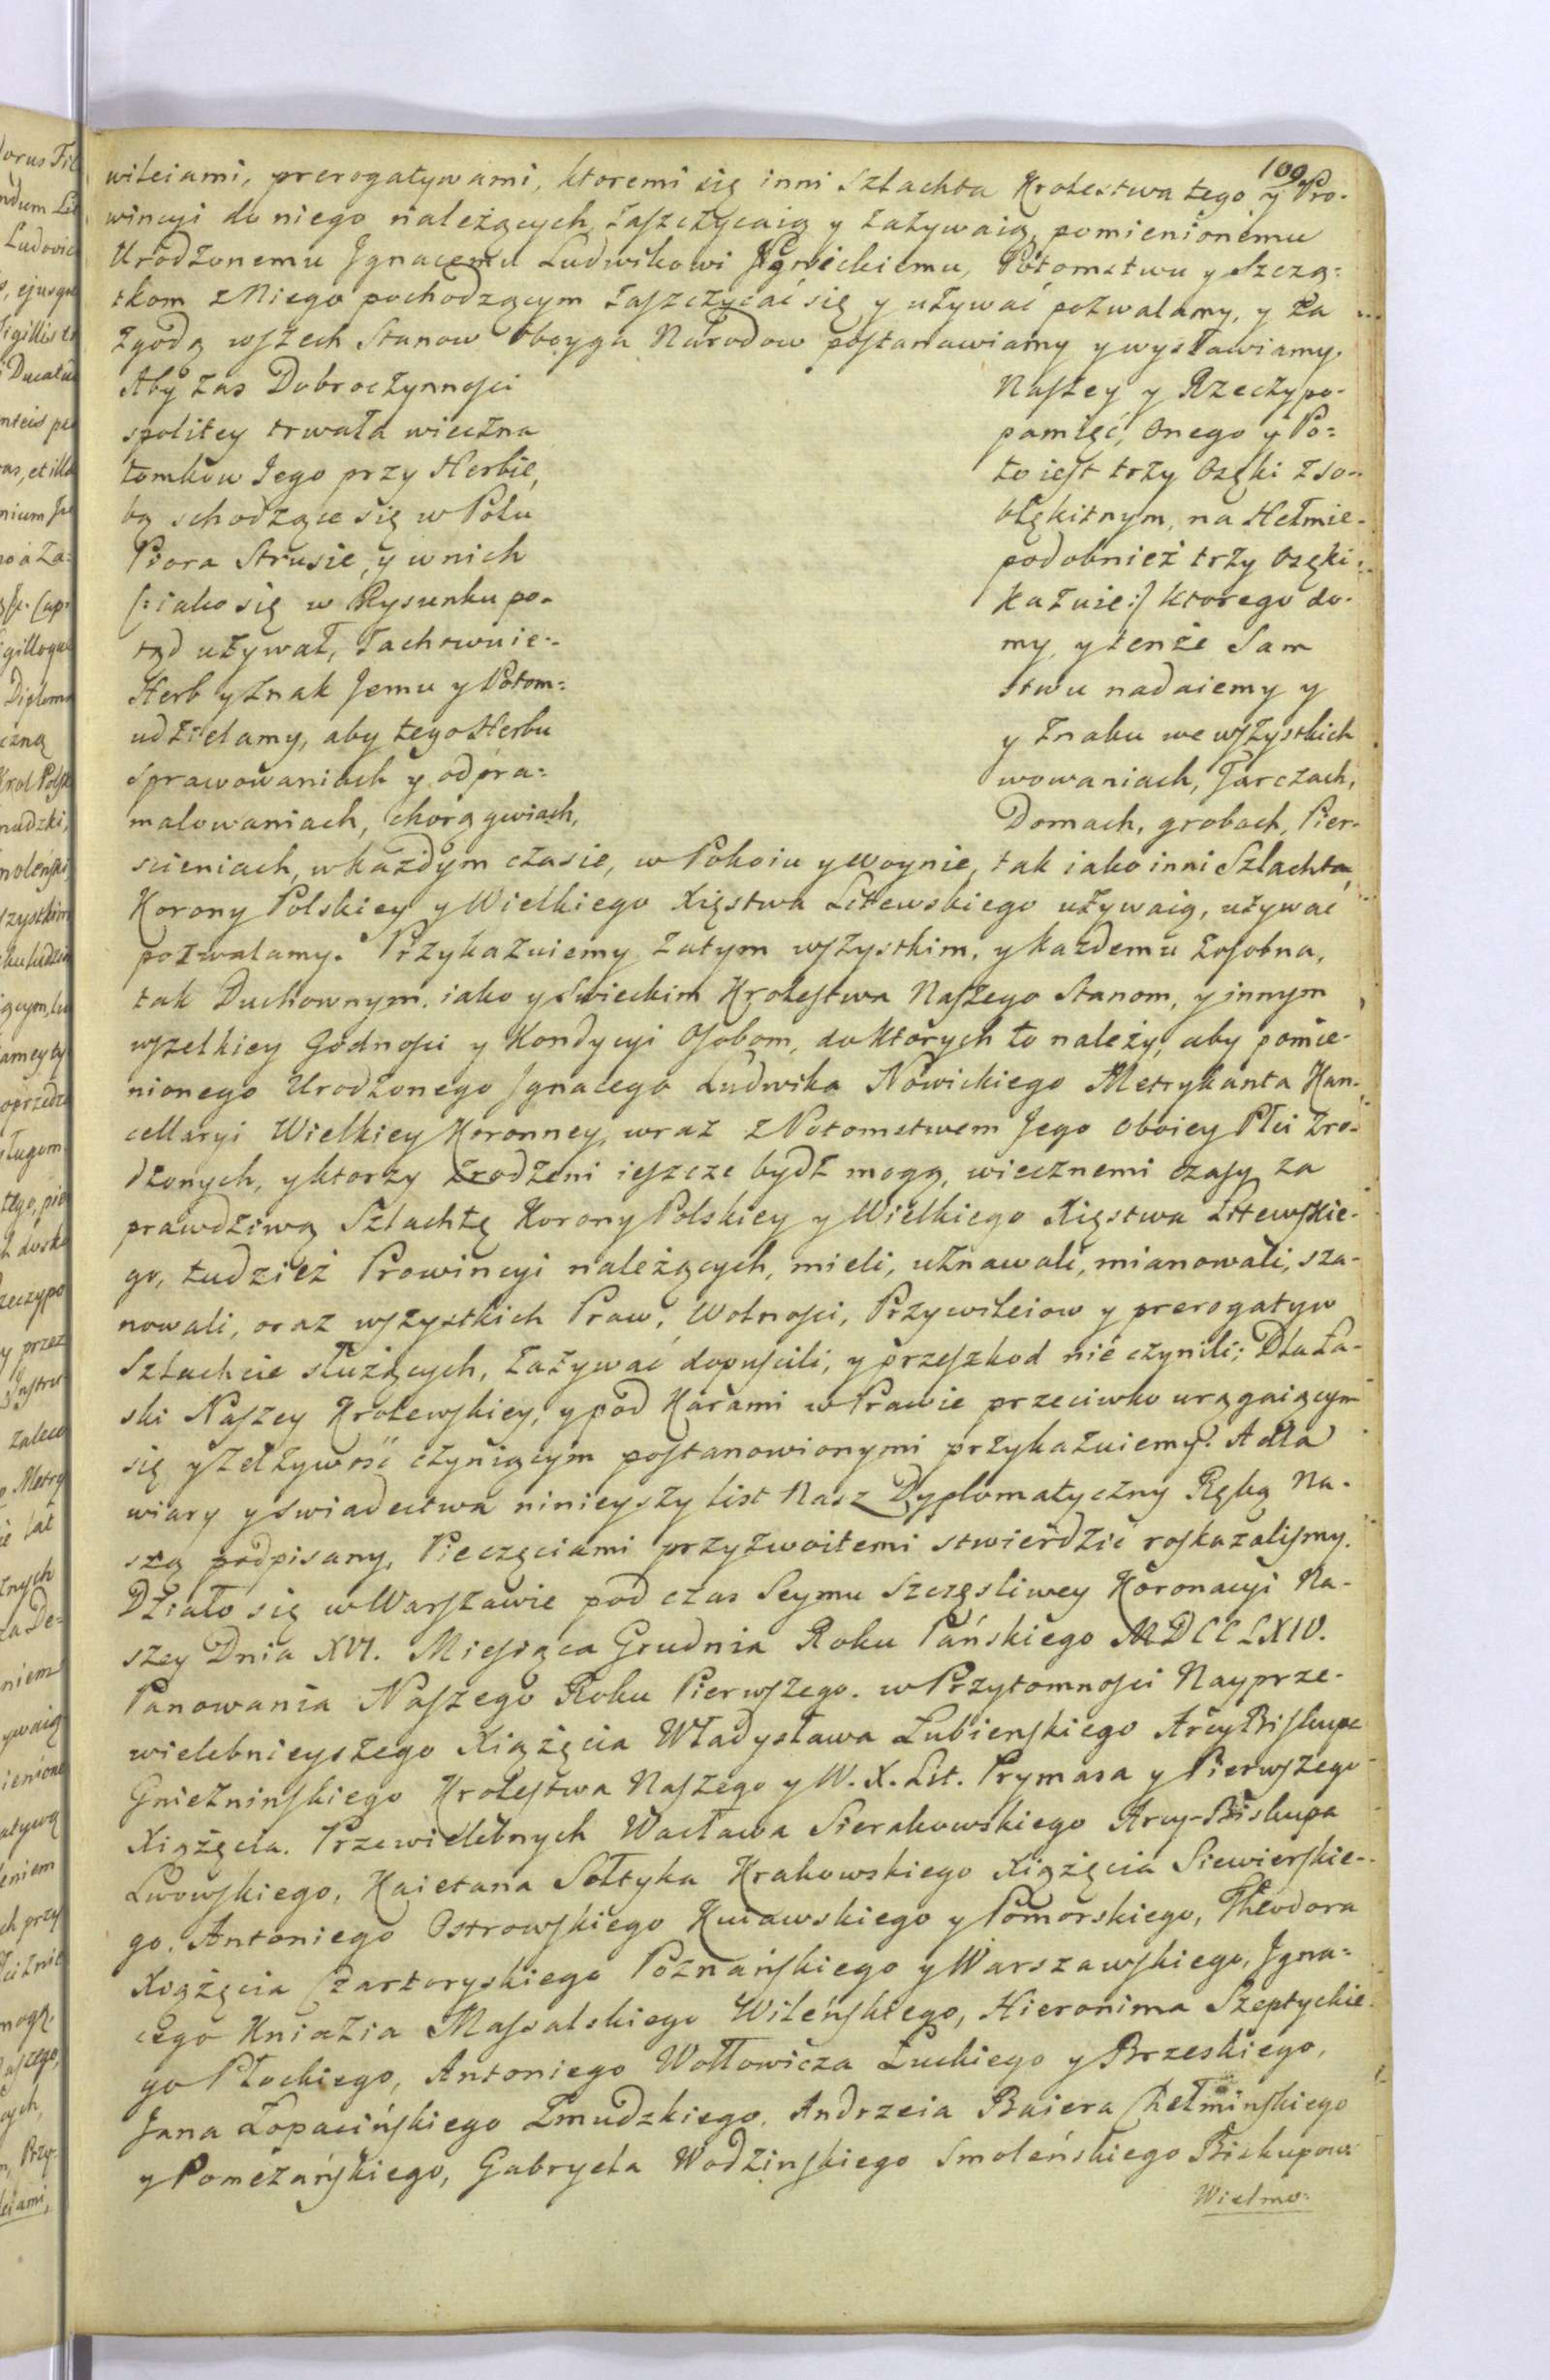 109
wileiami, prerogatywami, ktoremi się inni Szlachta Krolestwa tego y Pro-
wincyi do niego należących, zaszczycaią y zażywaią, pomienionemu
Urodzonemu Ignacemu Ludwikowi Nowickiemu, Potomstwu y Szczą-
tkom z Niego pochodzącym zaszczycać się y używać pozwalamy, y za
zgodą wszech Stanow Oboyga Narodow postanawiamy y wystawiamy.
Aby zas Dobroczynnosci Naszey y Rzeczypo-
spolitey trwała wieczna pamięć, Onego y Po=
tomkow Jego przy Herbie, to iest trzy Osęki z so-
bą schodzące się w Polu błękitnym, na Hełmie-
Piora Strusie, y w nich podobnież trzy Osęki
/: iako się w Rysunku po- kazuie :/ ktorego do-
tąd używał, zachowuie- my, y tenże Sam
Herb y Znak Jemu y Potom= stwu nadaiemy y
udzielamy, aby tego Herbu y Znaku we wszystkich
Sprawowaniach y odpra= wowaniach, Tarczach,
malowaniach, chorągwiach, Domach, grobach, Pier-
scieniach, w każdym czasie, w Pokoiu y woynie, tak iako inni Szlachta
Korony Polskiey y Wielkiego Xięstwa Littewskiego używaią, używać
pozwalamy. Przykazuiemy zatym wszystkim, y każdemu zosobna,
tak Duchownym, iako y Swieckim Krolestwa Naszego Stanom, y innym
wszelkiey Godnosci y Kondycyi Osobom, do ktorych to należy, aby pomie-
nionego Urodzonego Ignacego Ludwika Nowickiego Metrykanta Kan-
cellaryi Wielkiey Koronney, wraz z Potomstwem Jego oboiey Płci zro-
dzonych, y ktorzy zrodzeni ieszcze bydź mogą, wiecznemi czasy za
prawdziwą Szlachtę Korony Polskiey y Wielkiego Xięstwa Littewskie-
go, tudzież Prowincyi należących, mieli, uznawali, mianowali, sza-
nowali, oraz wszystkich Praw, Wolnosci, Przywileiow y prerogatyw
Szlachcie służących, zażywać dopuscili, y przeszkod nie czynili; Dla Ła-
ski Naszey Krolewskiey, y pod Karami w Prawie przeciwko urągaiącym
się y Zelżywość czyniącym postanowionymi przykazuiemy. A dla
wiary y swiadectwa ninieyszy list Nasz Dyplomatyczny Ręką Na-
szą podpisany, Pieczęciami przyzwoitemi stwierdzić roskazalismy.
Działo się w Warszawie pod czas Seymu Szczęsliwey Koronacyi Na-
szey Dnia XVI. Miesiąca Grudnia Roku Pańskiego MDCCLXIV.
Panowania Naszego Roku Pierwszego. w Przytomnosci Nayprze-
wielebnieyszego Xiążęcia Władysława Lubienskiego Arcy Biskupa
Gnieźninskiego Krolestwa Naszego y W. X. Lit. Prymasa y Pierwszego
Xiążęcia. Przewielebnych Wacława Sierakowskiego Arcy-Biskupa
Lwowskiego, Kaietana Sołtyka Krakowskiego Xiążęcia Siewierskie-
go, Antoniego Ostrowskiego Kuiawskiego y Pomorskiego, Theodora
Xiążęcia Czartoryskiego Poznańskiego y Warszawskiego, Igna=
cego Kniazia Massalskiego Wileńskiego, Hieronima Szeptyckie-
go Płockiego, Antoniego Wołłowicza Łuckiego y Brzeskiego,
Jana Łopacińskiego Zmudzkiego, Andrzeia Baiera Chełminskiego
y Pomezańskiego, Gabryela Wodzinskiego Smoleńskiego Biskupow
Wielmo: